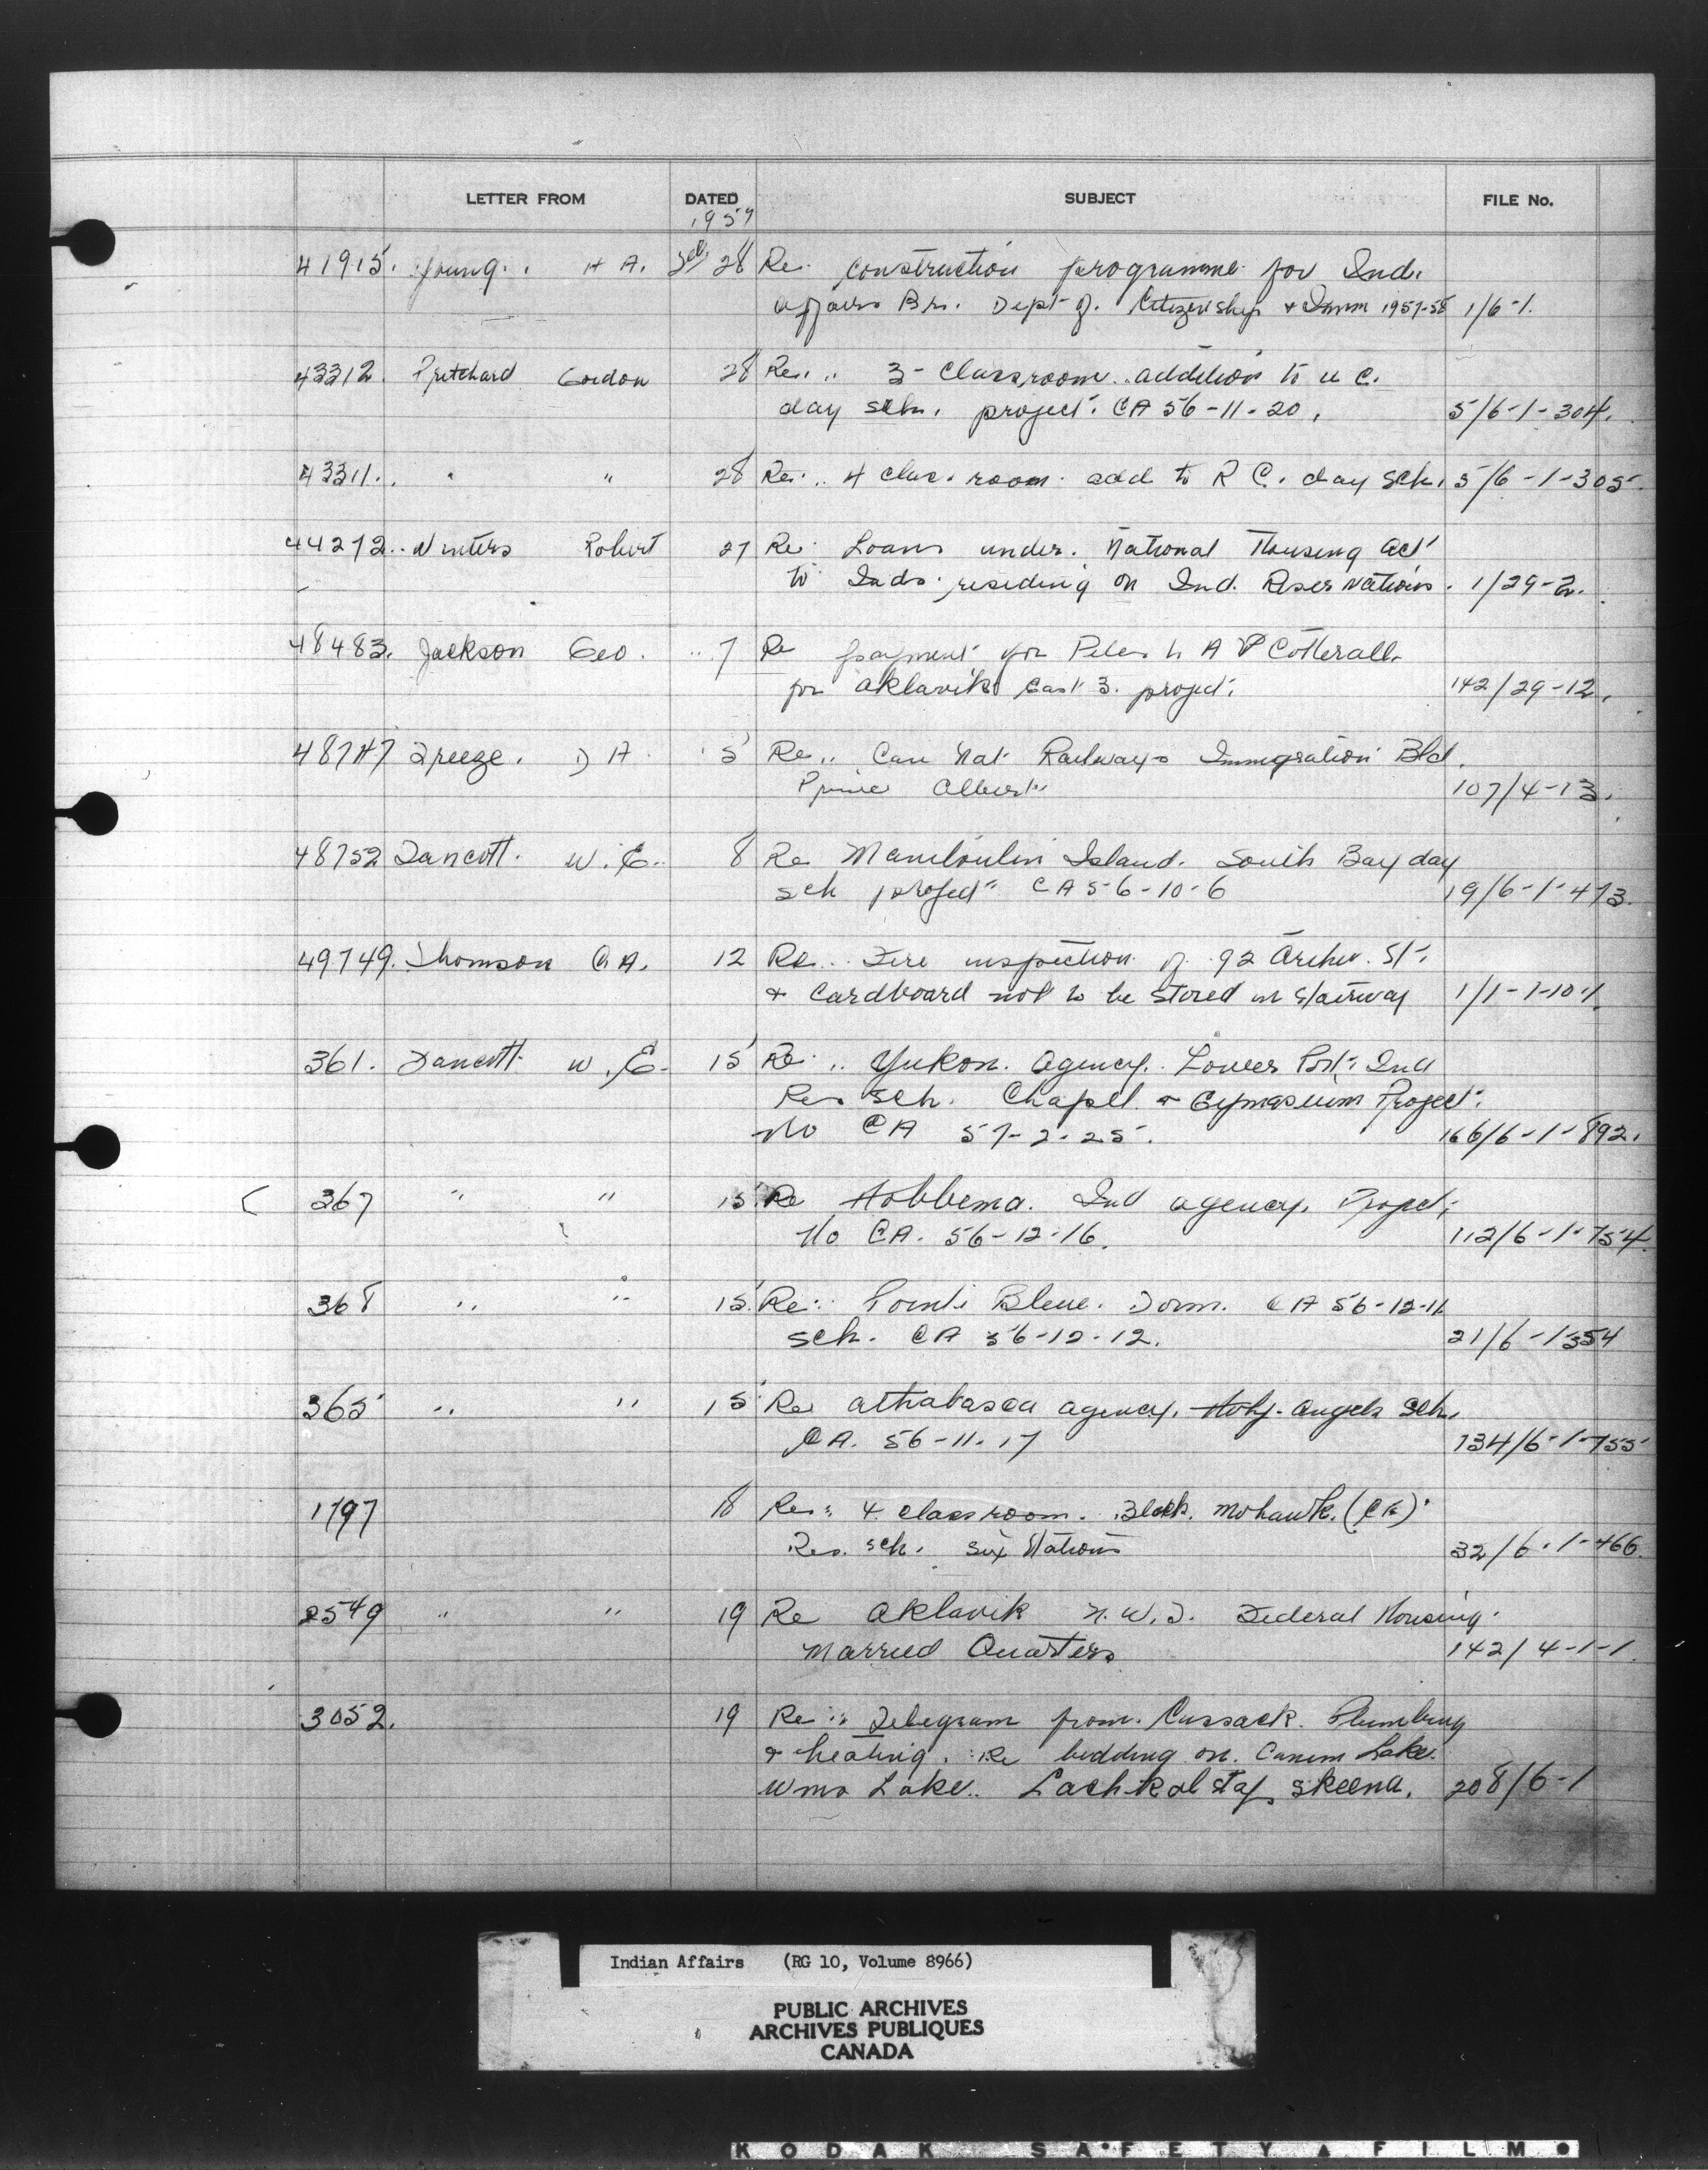 LETTER FROM DATED SUBJECT FILE No.
1957
41915. Young. H A. Feb 28 Re. construction programme for Ind.
affairs Br. Dept of. Citizenship & Imm 1957-58 1/6-1.
43312. Pritchard Gordon 28 Re. .. 3- Classroom addition to u c.
day sch. project. CA 56-11-20. 5/6-1-304.
43311. " " 28 Re. .. 4 clas. room add to R C. day Sch. 5/6-1-305.
44272. Winters Robert 27 Re. Loans under. National Housing act
to Inds. residing on Ind. Reservations. 1/29-2.
48483. Jackson Geo. .. 7 Re payment for Piles A Cotterall
for Aklavik East 3. project. 142/29-12.
48747 Freeze. D A. 5 Re.. Can Nat Railways Immigration Bld.
Prince Albert. 107/4-13.
48752 Tancott. W. E. 8 Re Manitoulin Island. South Bay day
sch project CA 56-10-6 19/6-1-473.
49749. Thomson A. 12 Re... Fire inspection of 92 Archer. St.
& Cardboard not to be stored in stairway 1/1-1-10-1.
361. Tancott W. E. 15 Re. .. Yukon. agency. Lower Post. Ind
Res Sch. Chapel & Gymnasium Project.
No CA 57-2-25. 166/6-1-892.
367 " " 15 Re Hobbema. Ind agency. Project.
No CA. 56-12-16. 112/6-1-754.
368 " " 15. Re. Pointe Bleue. Dorm. CA 56-12-11
sch. CA 56-12-12. 21/6-1-354
365 " " 15 Re athabasca agency. Holy Angels Sch.
CA. 56-11-17 134/6-1-755
1797 18 Re. 4. classroom. Block. Mohawk. (CE)
Res. sch. Six Nations 32/6-1-466.
2549 " " 19 Re Aklavik N. W. T. Federal Housing
Married Quarters 142/4-1-1.
3052. 19 Re. Telegram from. Cussack. Plumbing
& heating. Re bidding on. Canim Lake.
Wms Lake.. Lachkaltsap Skeena. 208/6-1
Indian Affairs (RG 10, Volume 8966)
PUBLIC ARCHIVES
ARCHIVES PUBLIQUES
CANADA
KODAK SAFETY FILM